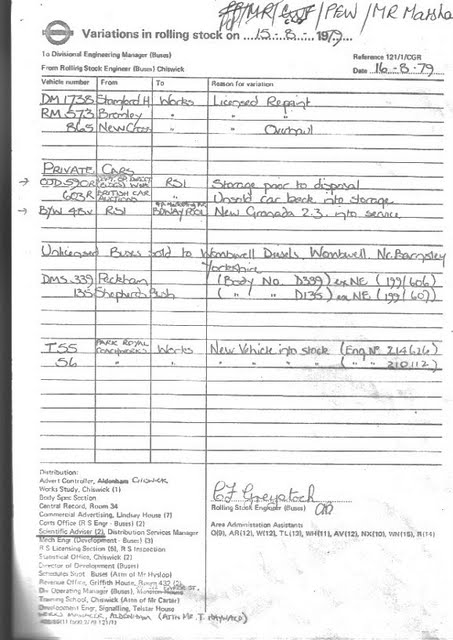 MR / PEW / MR Marsha
Variations in rolling stock on 15.-8.- 1979
To Divisional Engineering Manager (Buses)
From Rolling Stock Engineer (Buses) Chiswick
Reference 121/1/CGR
Date 16.-8.-79
Vehicle number From To Reason for variation
DM 1738 Stamford H. Works Licensed Repaint
RM 573 Bromley " " "
865 New Cross " " Overhaul
PRIVATE CARS
→ OJD 590R RSI Storage prior to disposal
603R BRITISH CAR AUCTIONS " Unsold car back into storage
→ BYW 48V RSI B'DWAY POOL New Granada 2.3. into service
Unlicensed Buses sold to Wombwell Diesels, Wombwell, Nr. Barnsley
Yorkshire
DMS 339 Peckham (Body No. D339) ex NE (199/606)
135 Shepherds Bush ( " / " D135) ex NE (199/607)
T55 PARK ROYAL COACHWORKS Works New Vehicle into stock (Eng Nº 214626)
56 " " " " " " ( " " 210112)
Distribution:
Advert Controller, Aldenham CHISWICK
Works Study, Chiswick (1)
Body Spec Section
Central Record, Room 34
Commercial Advertising, Lindsay House (7)
Costs Office (R S Engr - Buses) (2)
Scientific Adviser (2), Distribution Services Manager
Mech Engr (Development - Buses) (3)
R S Licensing Section (5), R S Inspection
Statistical Office, Chiswick (2)
Director of Development (Buses)
Schedules Supt Buses (Attn of Mr Hyslop)
Revenue Office, Griffith House, Room 432 (2)
Div Operating Manager (Buses),
Training School, Chiswick (Attn of Mr Carter)
Development Engr, Signalling, Telstar House
WORKS MANAGER, ALDENHAM (ATTN MR. T. HAYWARD)
CF Greystock
Rolling Stock Engineer (Buses)
Area Administration Assistants
O(9), AR(12), W(12), TL(13), WH(11), AV(12), NX(10), WN(15), R(14)